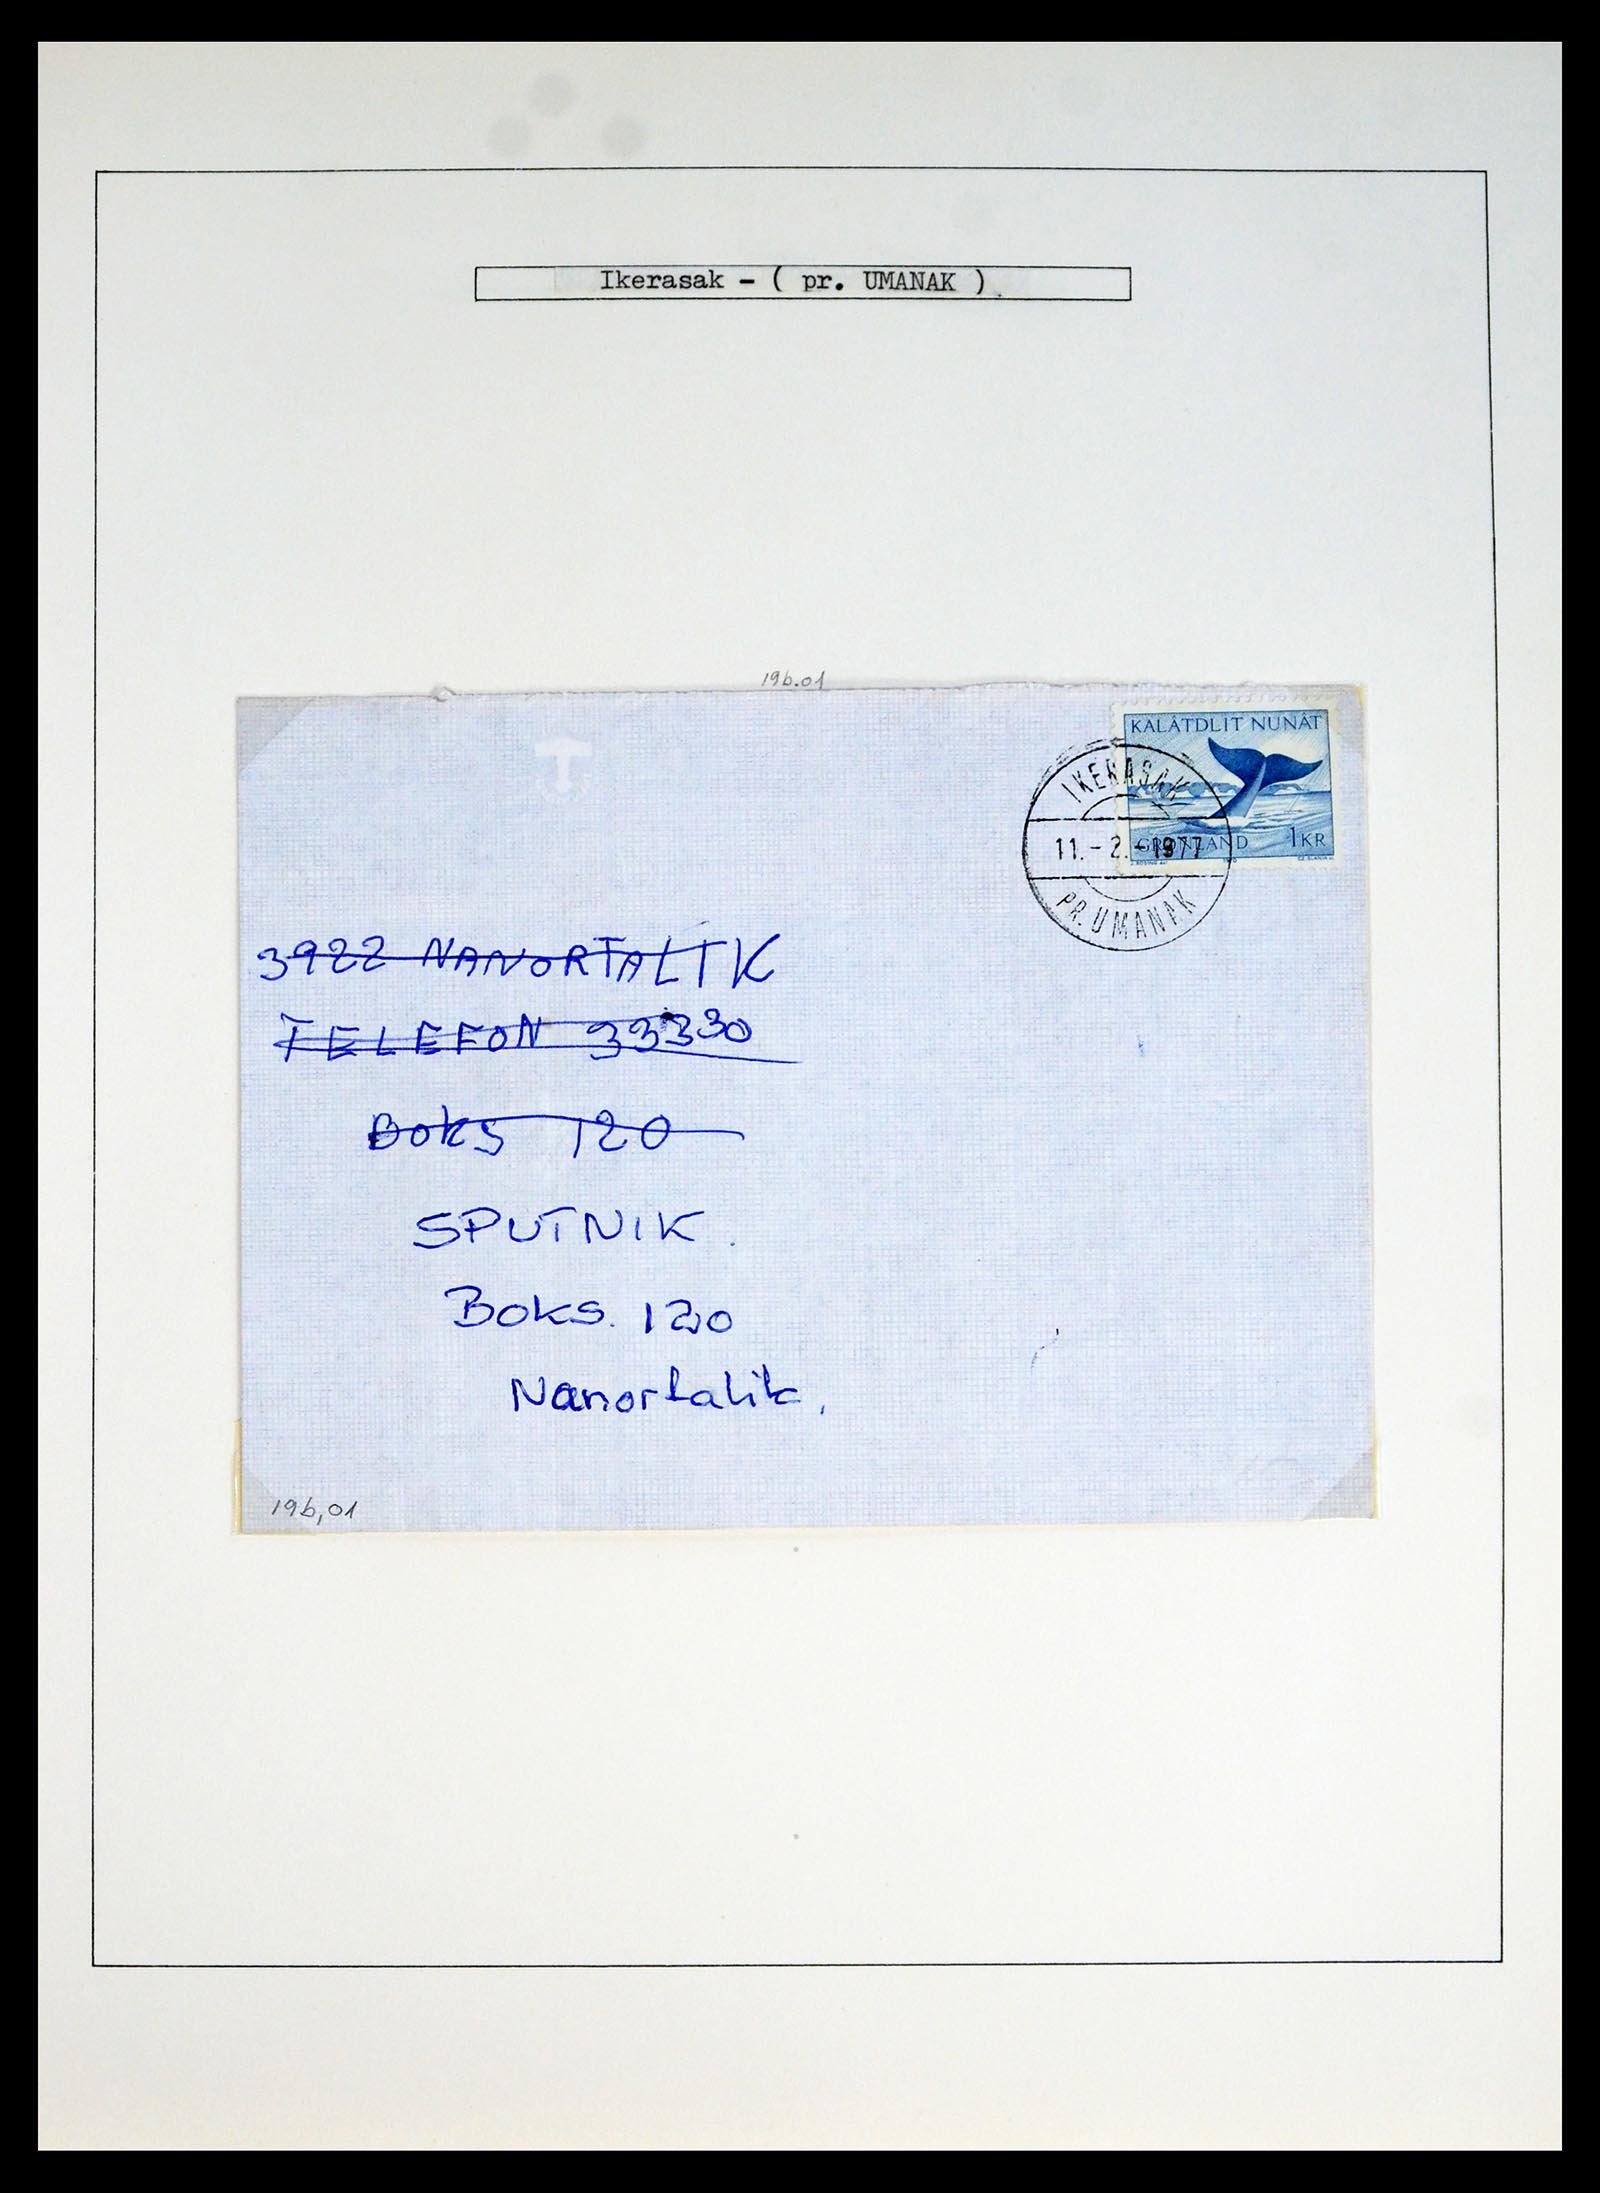 Ikerasak - ( pr. UMANAK )
19b.01
KALÂTDLIT NUNÂT
GRØNLAND 1KR
IKERASAK
11.-2.-1977
PR. UMANAK
3922 NANORTALIK
TELEFON 33330
Boks 120
SPUTNIK.
Boks. 120
Nanortalik,
19b,01